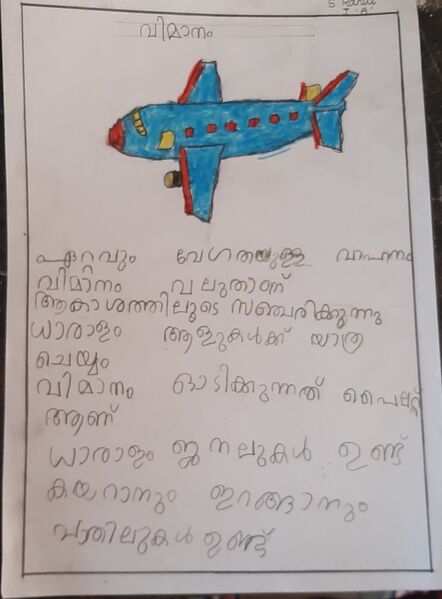 വിമാനം
ഏറ്റവും വേഗതയുള്ള വാഹനം
വിമാനം വലുതാണ്
ആകാശത്തിലൂടെ സഞ്ചരിക്കുന്നു
ധാരാളം ആളുകൾക്ക് യാത്ര
ചെയ്യും
വിമാനം ഓടിക്കുന്നത് പൈലറ്റ്
ആണ്
ധാരാളം ജനലുകൾ ഉണ്ട്
കയറാനും ഇറങ്ങാനും
വാതിലുകൾ ഉണ്ട്